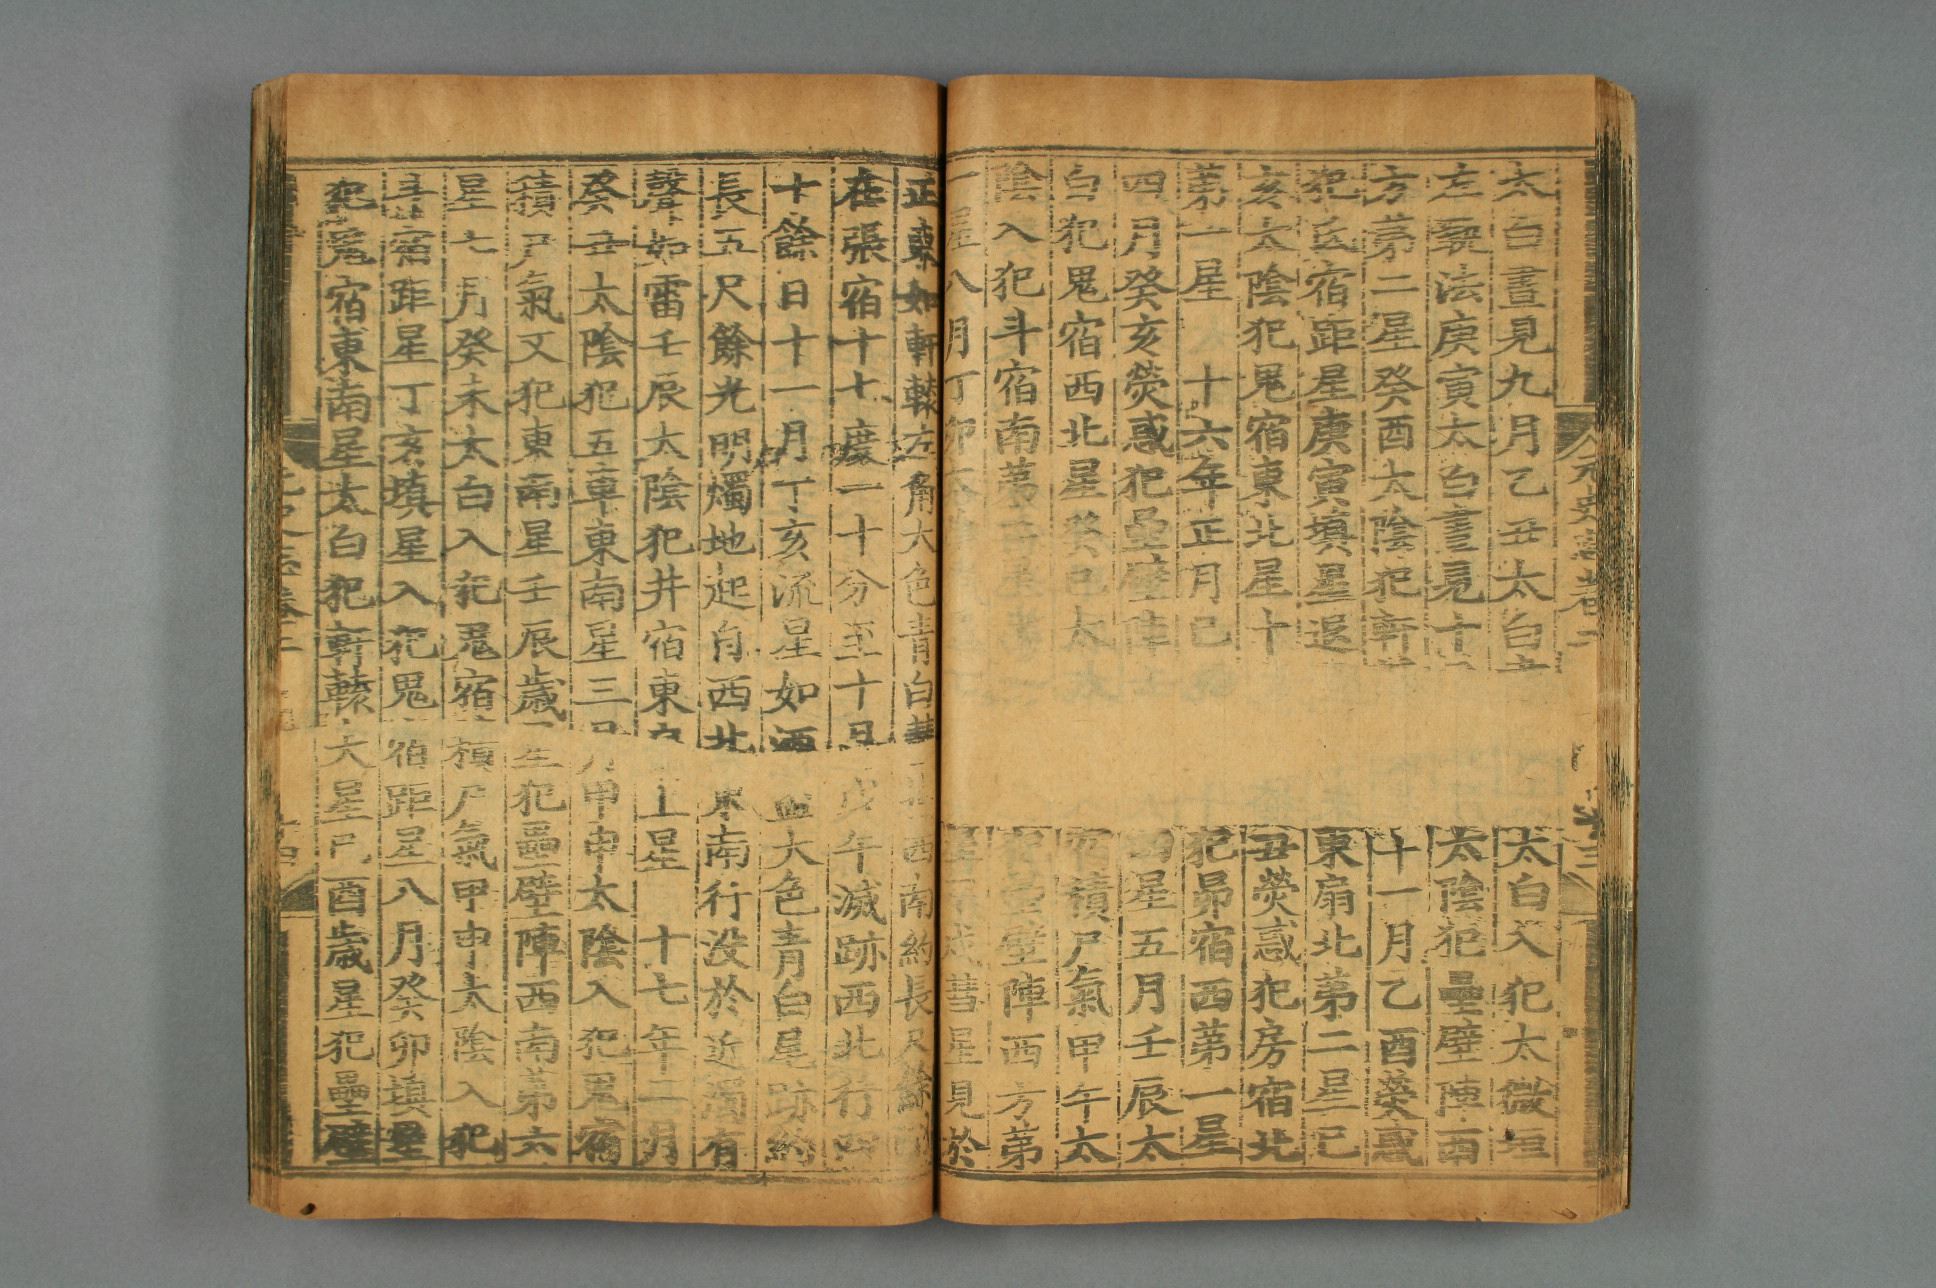 太白晝見九月乙丑太白 太白入犯太微垣
左執法庚寅太白晝見十 太陰犯壘壁陣西
方第二星癸酉太陰犯軒 十一月乙酉熒惑
犯氐宿距星庚寅填星退 東扇北第二星己
亥太陰犯鬼宿東北星十 丑熒惑犯房宿北
第一星 十六年正月己 犯昴宿西第一星
四月癸亥熒惑犯壘壁陣 四星五月壬辰太
白犯鬼宿西北星癸巳太 宿積尸氣甲午太
陰入犯斗宿南第 壁陣西方第
一星八月丁卯太 彗星見於
正東如軒轅左角大色青白 西南約長尺餘
在張宿十七度一十分至十月戊午滅跡西北行四
十餘日十一月丁亥流星如酒盃大色青白尾跡約
長五尺餘光明燭地起自西北東南行没於近濁有
聲如雷壬辰太陰犯井宿東 上星 十七年二月
癸丑太陰犯五車東南星三月甲申太陰入犯鬼宿
積尸氣又犯東南星壬辰歲星犯壘壁陣西南第六
星七月癸未太白入犯鬼宿積尸氣甲申太陰入犯
斗宿距星丁亥填星入犯鬼宿距星八月癸卯填星
犯鬼宿東南星太白犯軒轅大星己酉歲星犯壘壁